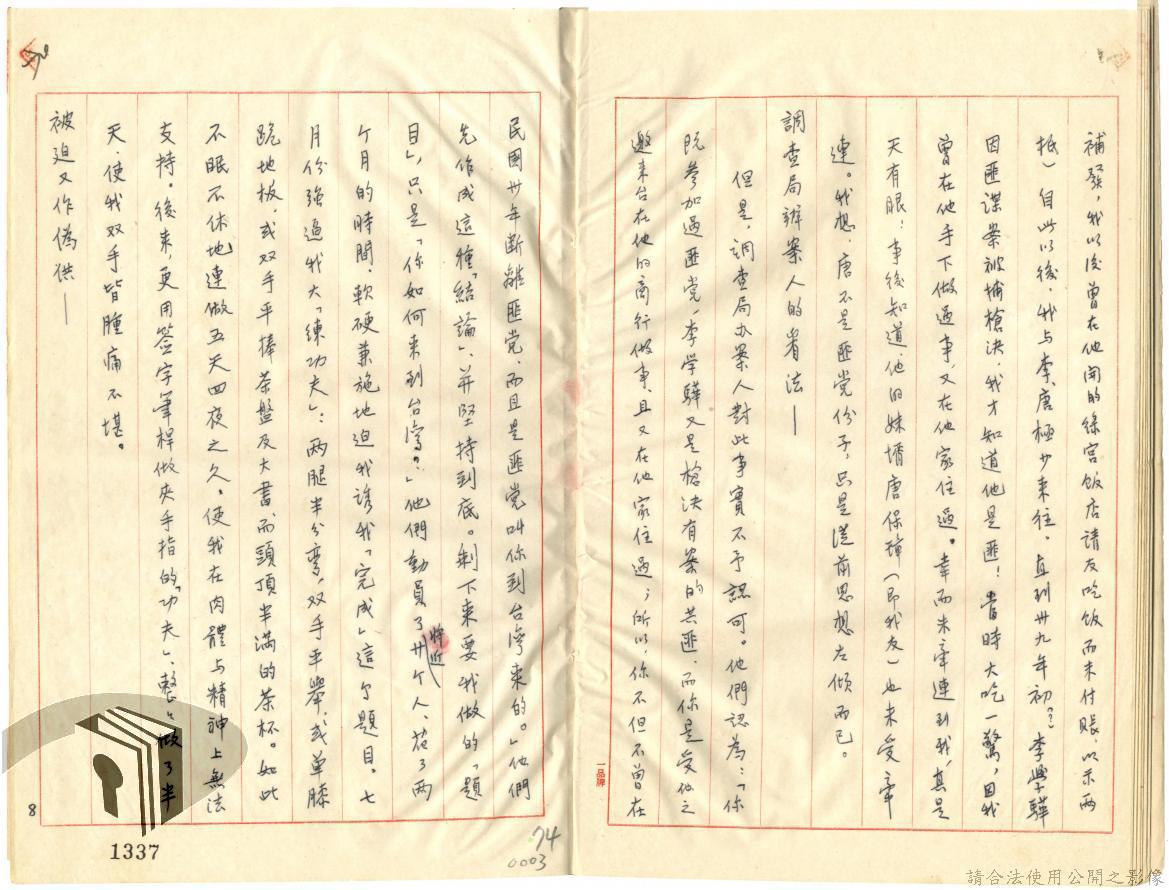 補發,我以後曾在他開的綠宮飯店請友吃飯而未付賬,以示兩
抵)自此以後,我与李、唐極少來往。直到卅九年初(?)李學驊
因匪諜案被捕槍決,我才知道他是匪!當時大吃一驚,因我
曾在他手下做過事,又在他家住過。幸而未牽連到我,真是
天有眼!事後知道,他的妹婿唐保璋(即我友)也未受牽
連。我想,唐不是匪党份子,只是從前思想左傾而已。
調查局辦案人的看法—
但是,調查局办案人對此事實不予認可。他們認為:「你
既參加過匪党,李学驊又是槍決有案的共匪,而你是受他之
邀來台在他的商行做事,且又在他家住過;所以,你不但不曾在
一品牌
民國卅年断離匪党,而且是匪党叫你到台灣來的。」他們
先作成這種「結論」,并堅持到底。剩下來要我做的「題
目」,只是「你如何來到台灣?」他們動員了將近卅个人、花了兩
个月的時間,軟硬兼施地迫我誘我「完成」這个題目。七
月份強逼我大「練功夫」:两腿半分彎,双手平舉,或單膝
跪地板,或双手平捧茶盤及大書,而頭頂半滿的茶杯。如此
不眠不休地連做五天四夜之久,使我在肉體与精神上無法
支持。後來,更用签字筆桿做夾手指的「功夫」,整整做了半
天,使我双手皆腫痛不堪。
被迫又作偽供—
8
1337
74
0003
請合法使用公開之影像